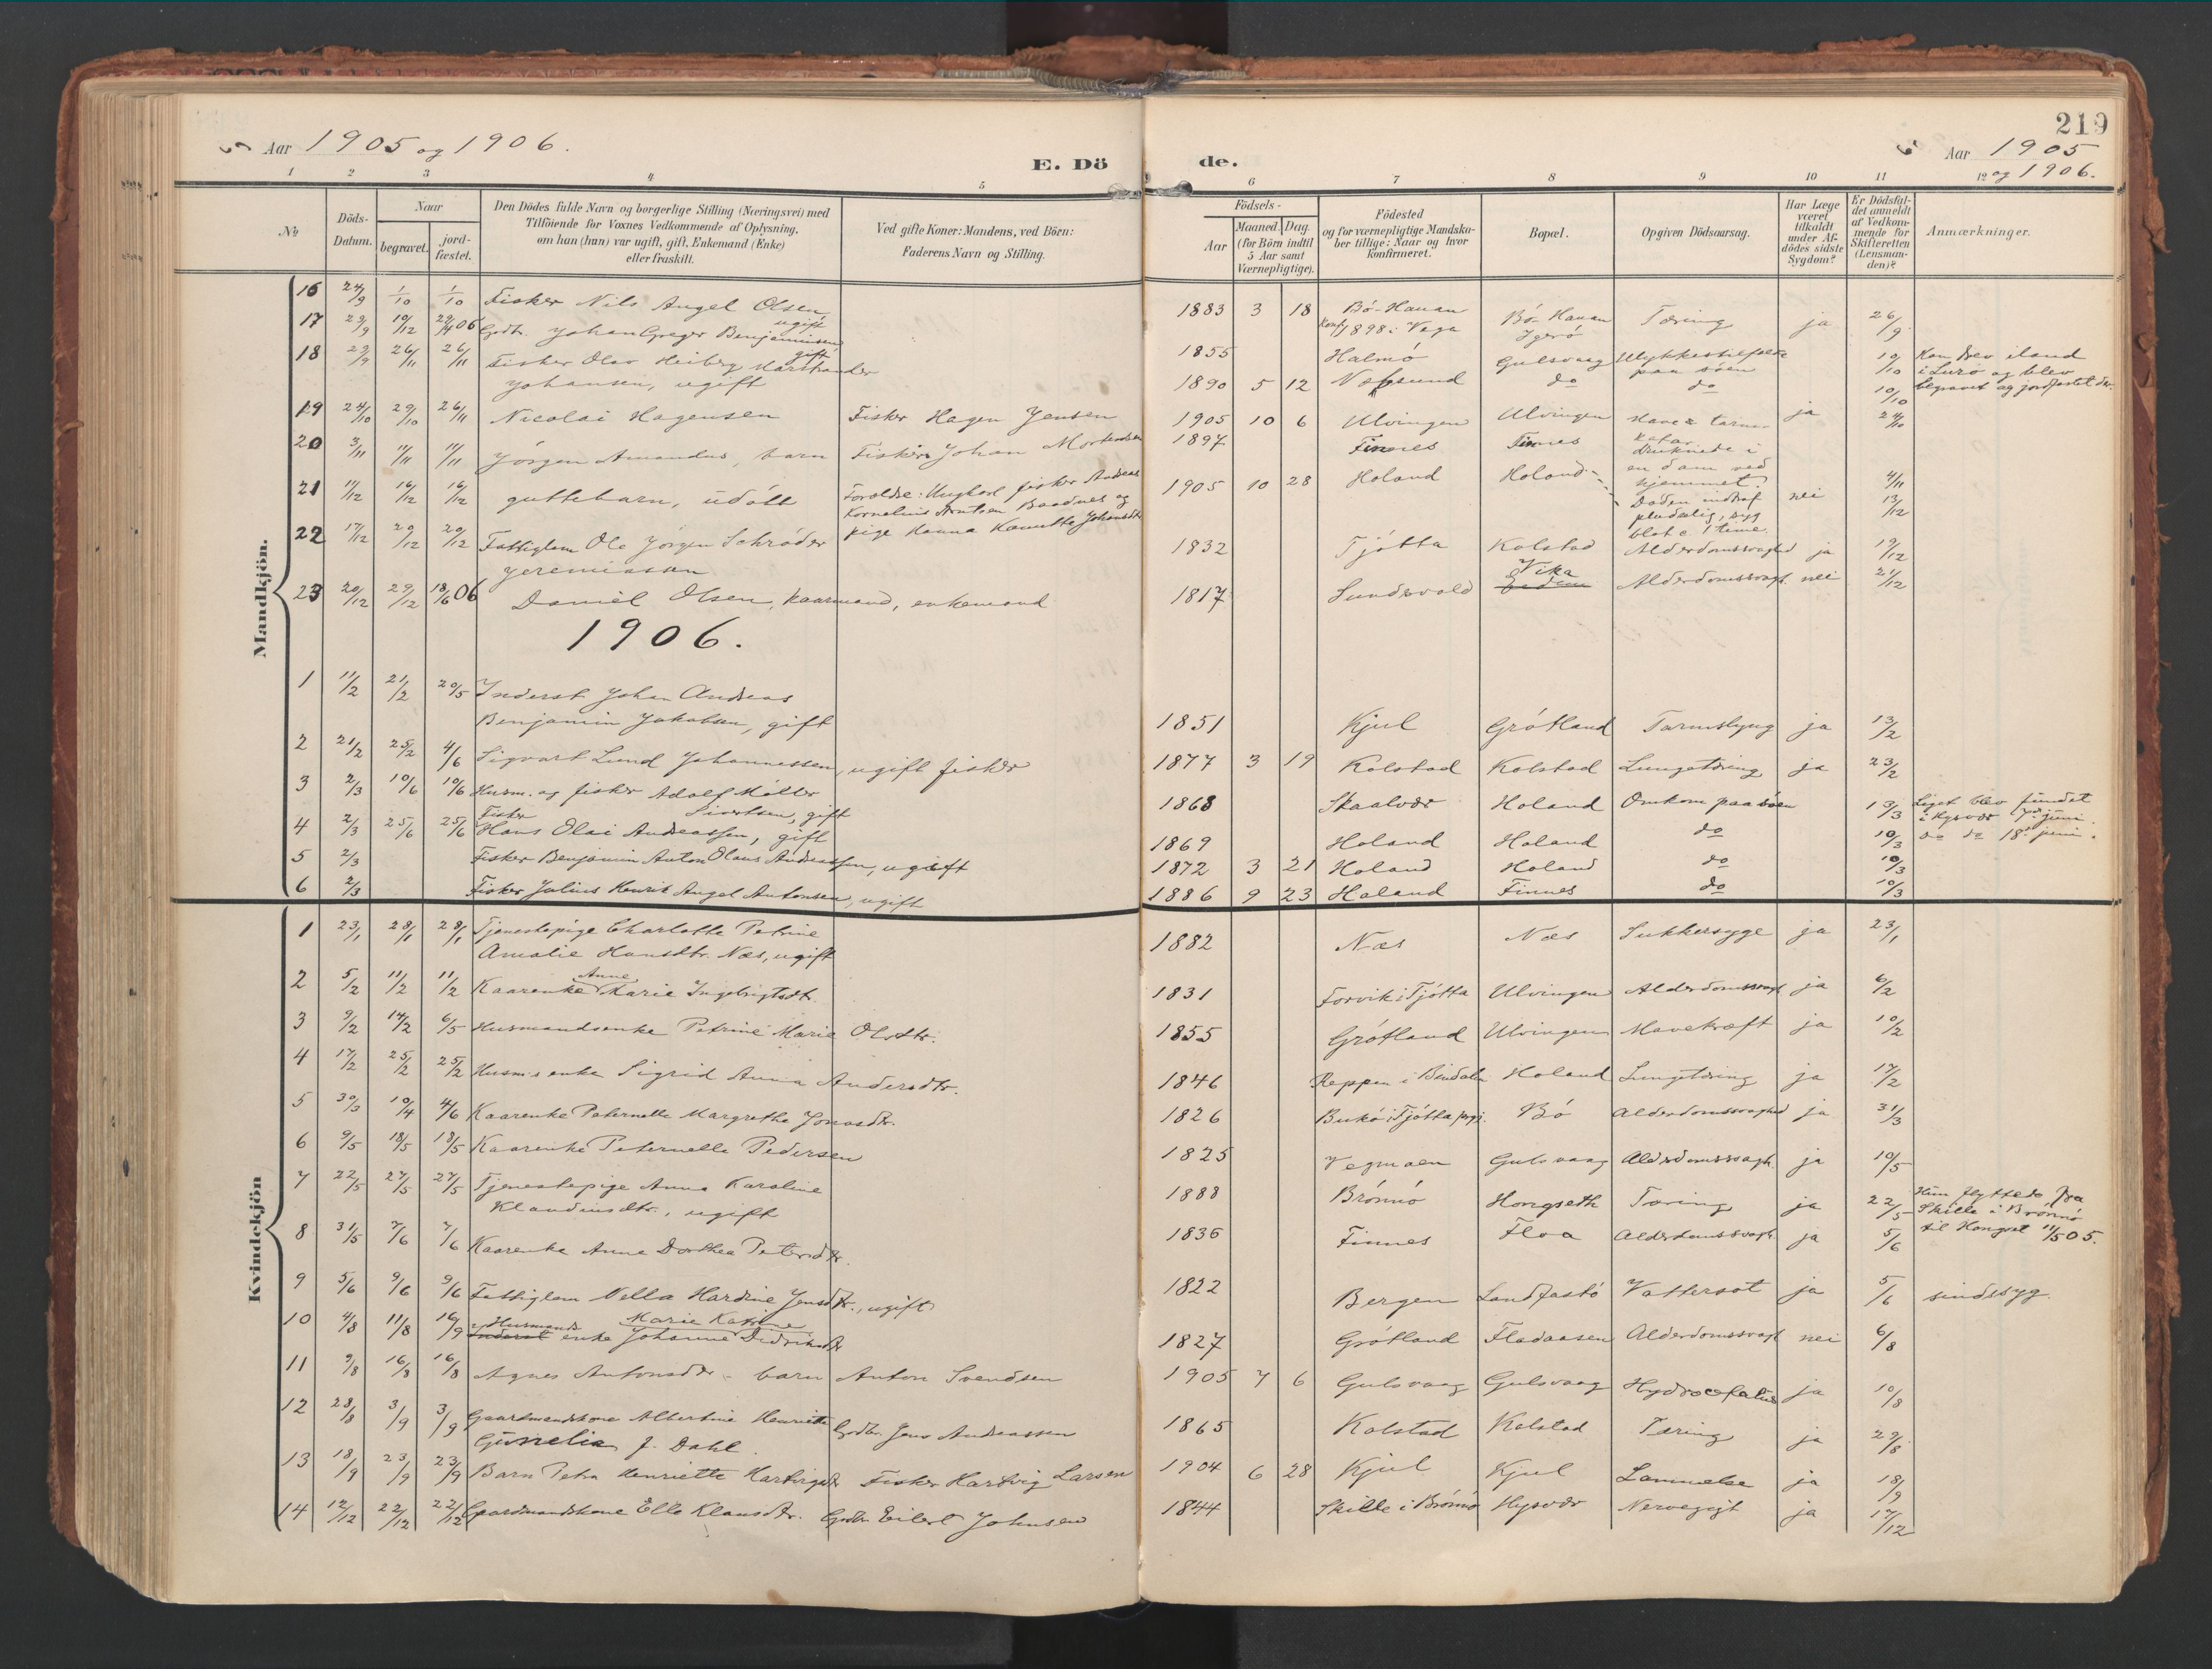 219
Aar 1905 og 1906.
E. Dö
de.
Aar 1905
og 1906.
1 2 3 4 5 6 7 8 9 10 11 12
No
Döds-Datum.
Naar
begravet.
jord-fæstet.
Den Dödes fulde Navn og borgerlige Stilling (Næringsvei) med
Tilföiende for Voxnes Vedkommende af Oplysning,
om han (hun) var ugift, gift, Enkemand (Enke)
eller fraskilt.
Ved gifte Koner: Mandens, ved Börn:
Faderens Navn og Stilling.
Födsels-
Aar
Maaned. Dag.
(for Börn indtil
5 Aar samt
Værnepligtige).
Födested
og for værnepligtige Mandska-
ber tillige: Naar og hvor
konfirmeret.
Bopæl.
Opgiven Dödsaarsag.
Har Læge
været
tilkaldt
under Af-
dödes sidste
Sygdom?
Er Dödsfal-
det anmeldt
af Vedkom-
mende for
Skifteretten
(Lensman-
den)?
Anmærkninger.
Mandkjön.
16 24/9 1/10 1/10 Fisker Nils Angel Olsen, ugift 1883 3 18 Bö-Havan Konf. 1898 i Vega Bö-Havan Tæring ja 26/9
17 29/9 10/12 06 Grdbr. Johan Greger Benjaminsen, gift 1855 Halmö Gulsvaag Ulykkestilfælde paa söen 10/10 i Lurö og blev
18 29/9 26/11 26/11 Fisker Olav Heiberg
Johansen, ugift 1890 5 12 do do 10/10 begravet og jordfæstet der.
19 24/10 29/10 26/11 Nicolai Hagensen Fisker Hagen Jensen 1905 10 6 Ulvingen Ulvingen Mave & tarm katar ja 24/10
20 3/11 11/11 11/11 Jörgen Amandus, barn Fisker Johan Mortensen 1897 Finnes Finnes Druknede i en dam ved hjemmet. 4/11
21 11/12 16/12 16/12 guttebarn, udöbt Forældre: Ungkarl fisker Andreas
Kornelius Baadnes og
pige Hanna Johansdtr 1905 10 28 Holand Holand Döden indtraf pludselig, syg blot c. 1 time. nei 13/12
22 17/12 20/12 20/12 Fattiglem Ole Jörgen Schröder
Jeremiassen 1832 Tjötta Kolstad Alderdomssvaghed ja 19/12
23 20/12 29/12 18/6 06 Daniel Olsen, kaarmand, enkemand 1817 Sundsvold Vika Alderdomssvagh. nei 21/12
1906.
1 11/2 21/2 20/5 Inderst Johan Andreas
Benjamin Jakobsen, gift 1851 Kjul Grötland Tarmslyng ja 13/2
2 21/2 25/2 4/6 Sigvart Lund Johannessen, ugift fisker 1877 3 19 Kolstad Kolstad Lungetæring ja 23/2
3 2/3 10/6 10/6 Husm. og fisker Adolf Möller
Sivertsen, gift 1868 Skaalvær Holand Omkom paa söen 13/3 Liget blev fundet
i Hysvær 7de juni.
4 2/3 25/6 25/6 Fisker Hans Olai Andreassen, gift 1869 Holand Holand do 10/3 do do 18de juni.
5 2/3 Fisker Benjamin Anton Olaus Andreassen, ugift 1872 3 21 Holand Holand do 10/3
6 2/3 Fisker Julius Henrik Angel Antonsen, ugift 1886 9 23 Holand Finnes do 10/3
Kvindekjön
1 23/1 28/1 28/1 Tjenestepige Charlotte Petrine
Amalie Hansdtr. Næs, ugift 1882 Næs Næs Sukkersyge ja 23/1
2 5/2 11/2 11/2 Kaarenke Anne Marie Ingebrigtsdt. 1831 Forvik i Tjötta Ulvingen Alderdomssvagh. ja 6/2
3 9/2 14/2 6/5 Husmandsenke Petrine Marie Olsdtr. 1855 Grötland Ulvingen Mavekræft ja 10/2
4 17/2 25/2 25/2 Husm.s enke Sigrid Anna Andersdtr. 1846 Reppen i Bindalen Holand Lungetæring ja 17/2
5 30/3 10/4 4/6 Kaarenke Peternelle Margrethe Jonasdtr. 1826 Bukö i Tjötta prgj. Bö Alderdomssvaghed ja 31/3
6 9/5 18/5 18/5 Kaarenke Peternelle Pedersen 1825 Vegmoen Gulsvaag Alderdomssvagh. ja 10/5
7 22/5 27/5 27/5 Tjenestepige Anna Karoline
Klaudiusdtr., ugift 1888 Brönnö Hongseth Tæring ja 22/5 Hun flyttede fra
Skille i Brönnö
til Hongset 11/5 05.
8 31/5 7/6 7/6 Kaarenke Anne Dorthea Petersdtr. 1836 Finnes Floa Alderdomssvagh. ja 5/6
9 5/6 9/6 9/6 Fattiglem Nella Hardine Jensdtr., ugift 1822 Bergen Landfastö Vattersot ja 5/6 sindssyg.
10 4/8 11/8 16/9 Husmands Inderst enke Marie Katrine Johanne Didriksdtr 1827 Grötland Fladaasen Alderdomssvagh nei 6/8
11 9/8 16/8 16/8 Agnes Antonsdtr - barn Anton Svendsen 1905 7 6 Gulsvaag Gulsvaag Hydrocefalus ja 10/8
12 28/8 3/9 3/9 Gaardmandskone Albertine Henriette
Gunelia J. Dahl. Grdbr. Jens Andreassen 1865 Kolstad Kolstad Tæring ja 29/8
13 18/9 23/9 23/9 Barn Petra Henriette Hartvigsdtr Fisker Hartvig Larsen 1904 6 28 Kjul Kjul Lammelse ja 18/9
14 12/12 22/12 22/12 Gaardmandskone Elle Klausdtr. Grdbr. Eilert Johnsen 1844 Skille i Brönnö Hysvær Nervegigt ja 17/12